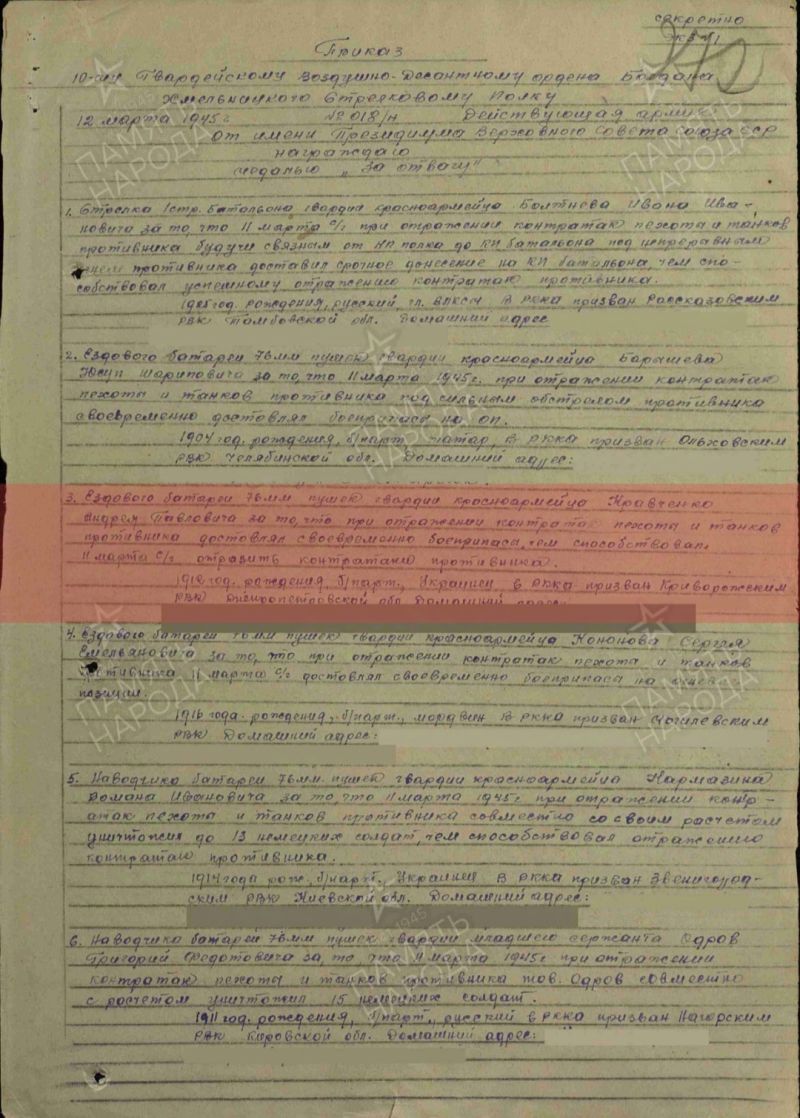 секретно
экз №1
Приказ
10-му Гвардейскому Воздушно-Десантному ордена Богдана
Хмельницкого Стрелковому Полку
12 марта 1945 г. № 018/н Действующая армия
От имени Президиума Верховного Совета Союза ССР
награждаю
медалью „За отвагу"
1. Стрелка 1 стр. батальона гвардии красноармейца Болтнева Ивана Ива-
новича за то, что 11 марта с/г при отражении контратак пехоты и танков
противника будучи связным от НП полка до КП батальона под непрерывным
огнем противника доставил срочное донесение на КП батальона, чем спо-
собствовал успешному отражению контратаки противника.
1925 год. рождения, русский, чл. ВЛКСМ В РККА призван Рассказовским
РВК Тамбовской обл. Домашний адрес
2. Ездового батареи 76 мм пушек гвардии красноармейца Барышева
Юсуп Шариповича за то, что 11 марта 1945 г. при отражении контратак
пехоты и танков противника под сильным обстрелом противника
своевременно доставлял боеприпасы на оп.
1904 год. рождения, б/парт татар, В РККА призван Ольховским
РВК Челябинской обл. Домашний адрес:
3. Ездового батареи 76 мм пушек гвардии красноармейца Кравченко
Андрея Павловича за то, что при отражении контратак пехоты и танков
противника доставлял своевременно боеприпаса, чем способствовал
11 марта с/г отразить контратаки противника.
1912 год. рождения, б/парт., Украинец в РККА призван Криворожским
РВК Днепропетровской обл Домашний адрес:
4. Ездового батареи 76 мм пушек гвардии красноармейца Кононова Сергея
Емельяновича за то, что при отражении контратак пехоты и танков
противника 11 марта с/г доставлял своевременно боеприпаса на огневые
позиции.
1916 года. рождения, б/парт., мордвин В РККА призван Могилевским
РВК Домашний адрес:
5. Наводчика батареи 76 мм. пушек гвардии красноармейца Кармазина
Домана Ивановича за то, что 11 марта 1945 г при отражении контр-
атак пехоты и танков противника совместно со своим расчетом
уничтожил до 13 немецких солдат, чем способствовал отражению
контратаки противника.
1914 года рож, б/парт. Украинец В РККА призван Звенигород-
ским РВК Киевской обл. Домашний адрес:
6. Наводчика батареи 76 мм пушек гвардии младшего сержанта Одров
Григорий Федотовича за, то, что 11 марта 1945 г при отражении
контратак пехоты и танков противника тов. Одров совместно
с расчетом уничтожил 15 немецких солдат.
1911 год. рождения, б/парт., русский в РККА призван Нагорским
РВК Кировской обл. Домашний адрес:
ПАМЯТЬ
НАРОДА